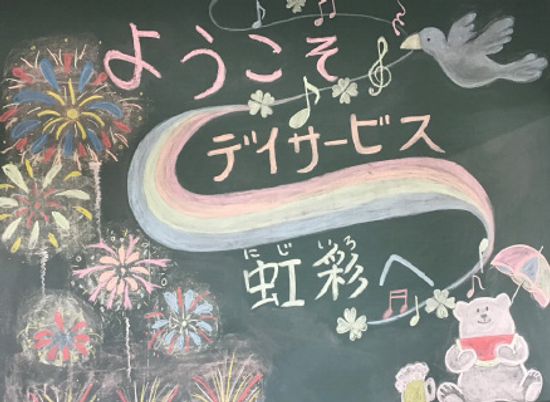 ようこそ
デイサービス
にじいろ
虹彩へ